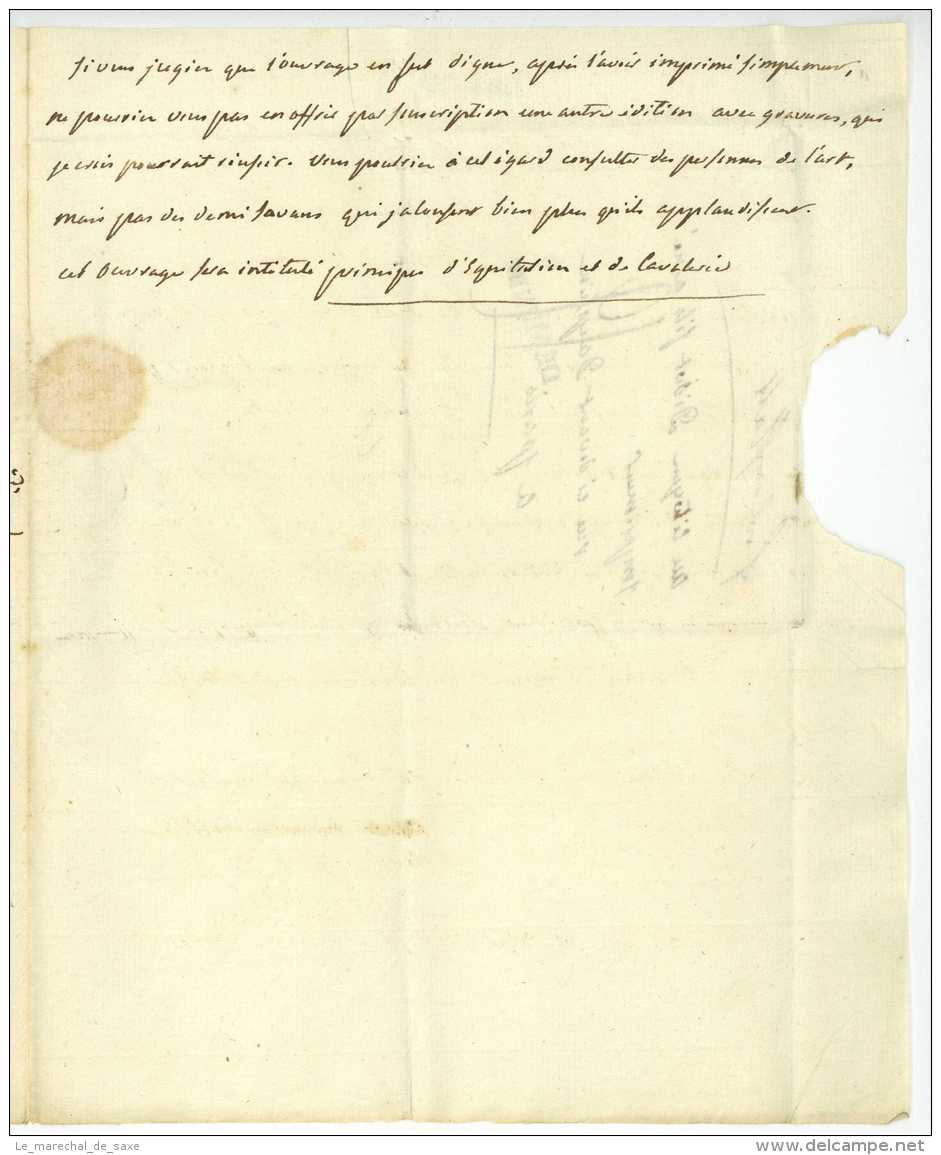 si vous jugiez que l'ouvrage en fut digne, après l'avoir imprimé simplement,
ne pourriez vous pas en offrir par souscription une autre édition avec gravures, qui
je crois pourrait réussir. vous pourriez à cet égard consulter des personnes de l'art,
mais pas des demi savans qui jalousent bien plus qu'ils applaudissent.
cet ouvrage sera intitulé principes d'Equitation et de Cavalerie
au Citoyen Didot fils
imprimeur
rue
à Paris
Le_marechal_de_saxe
delcampe.net